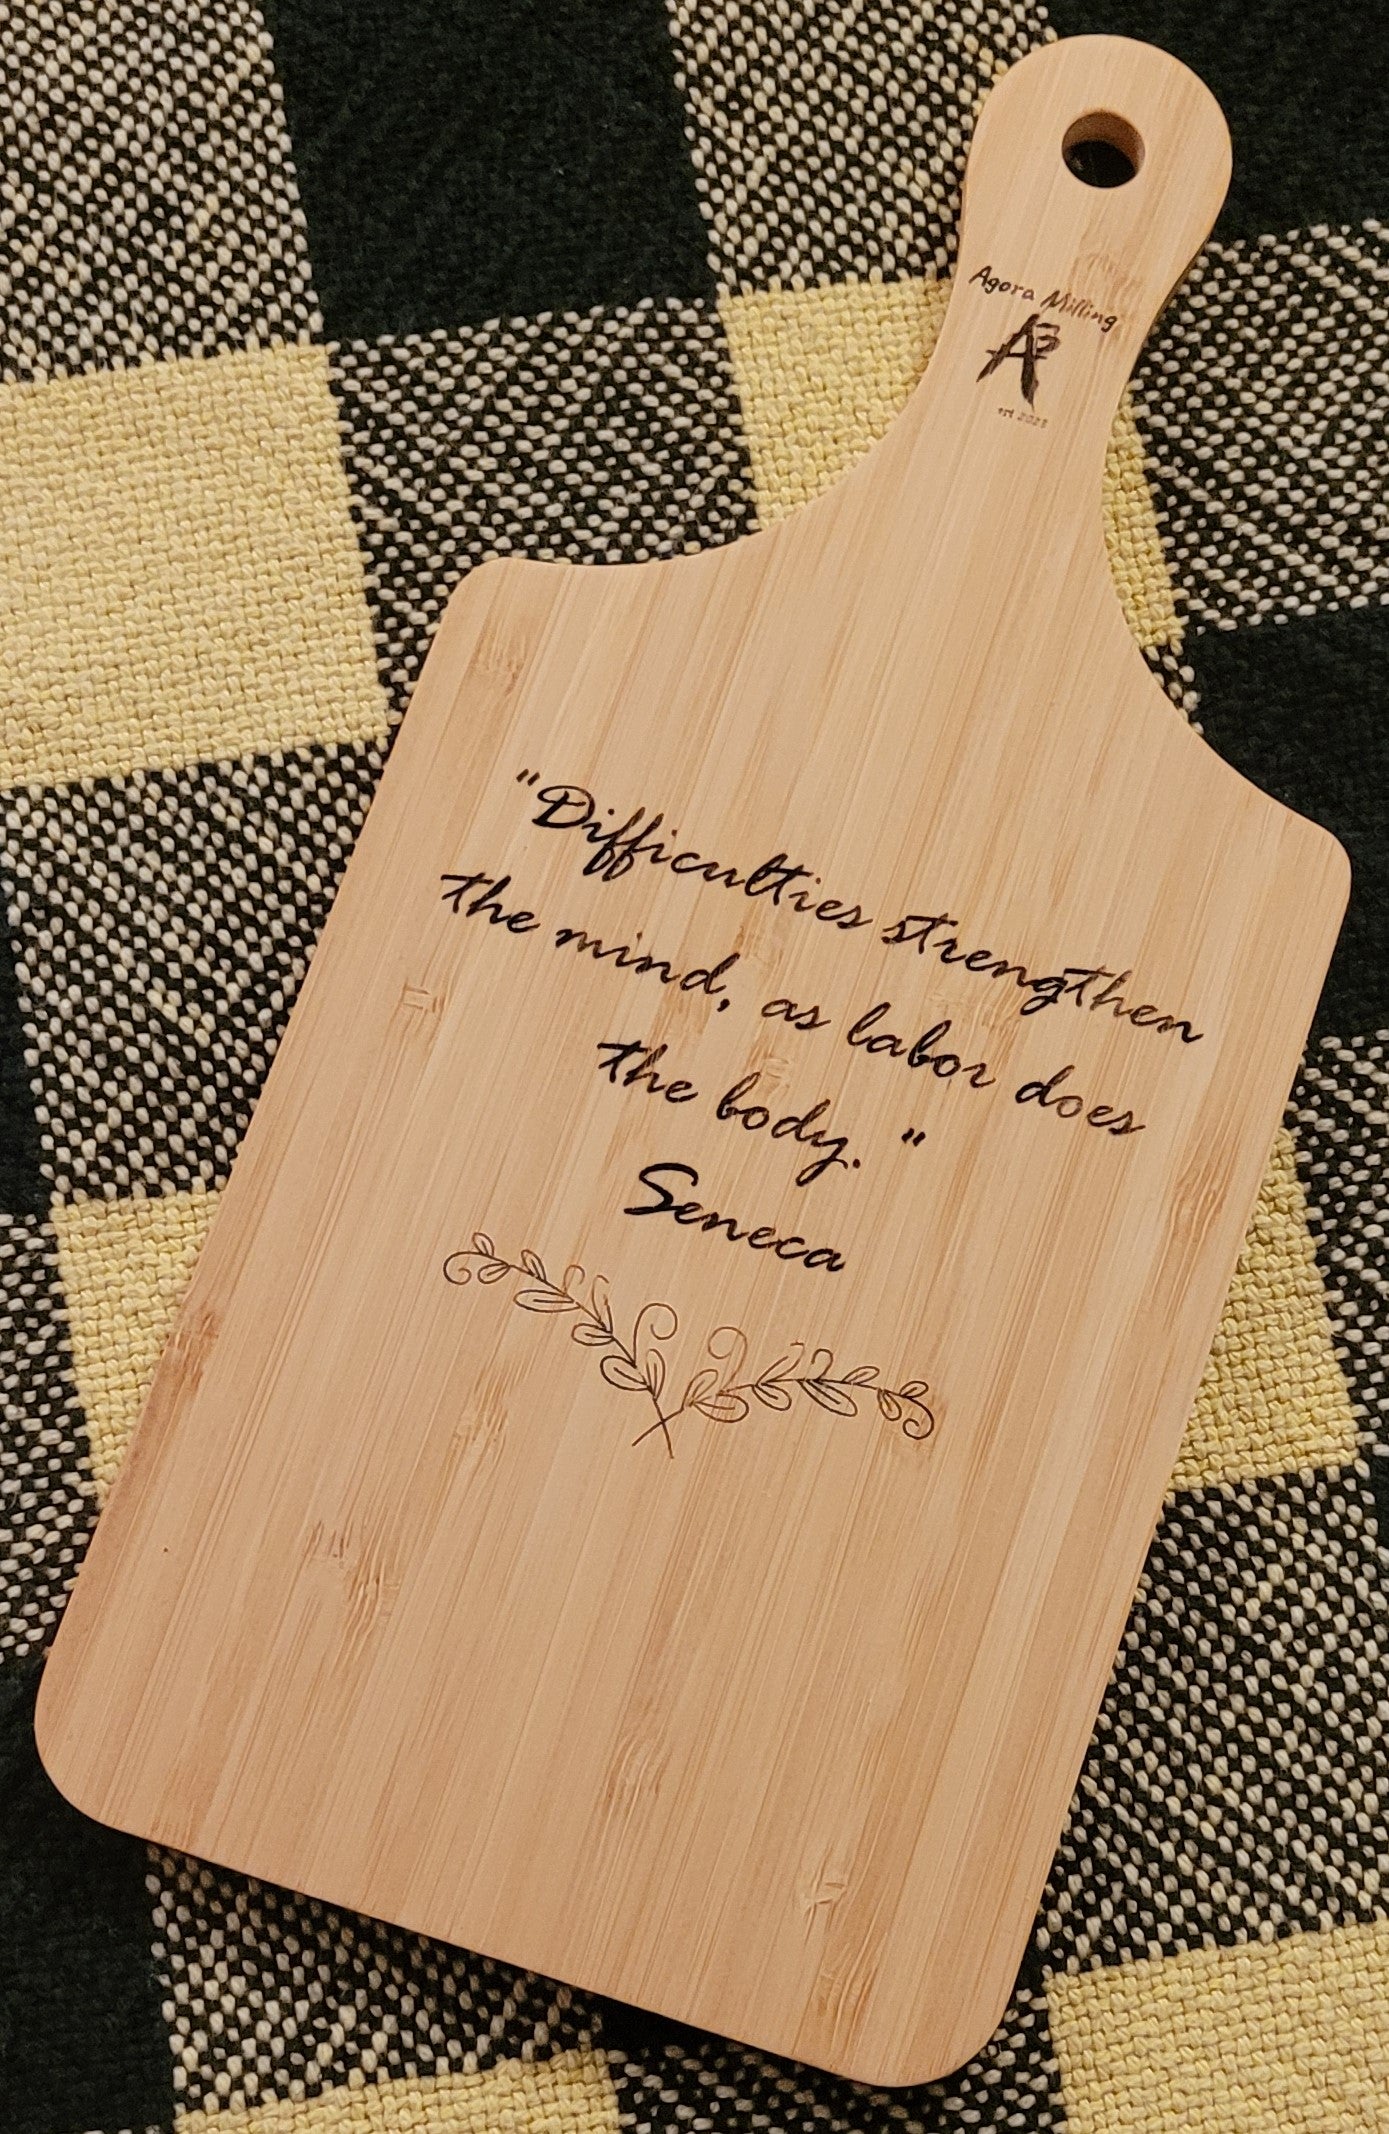 Agora Milling
A3
est 2023
"Difficulties strengthen
the mind, as labor does
the body. "
Seneca